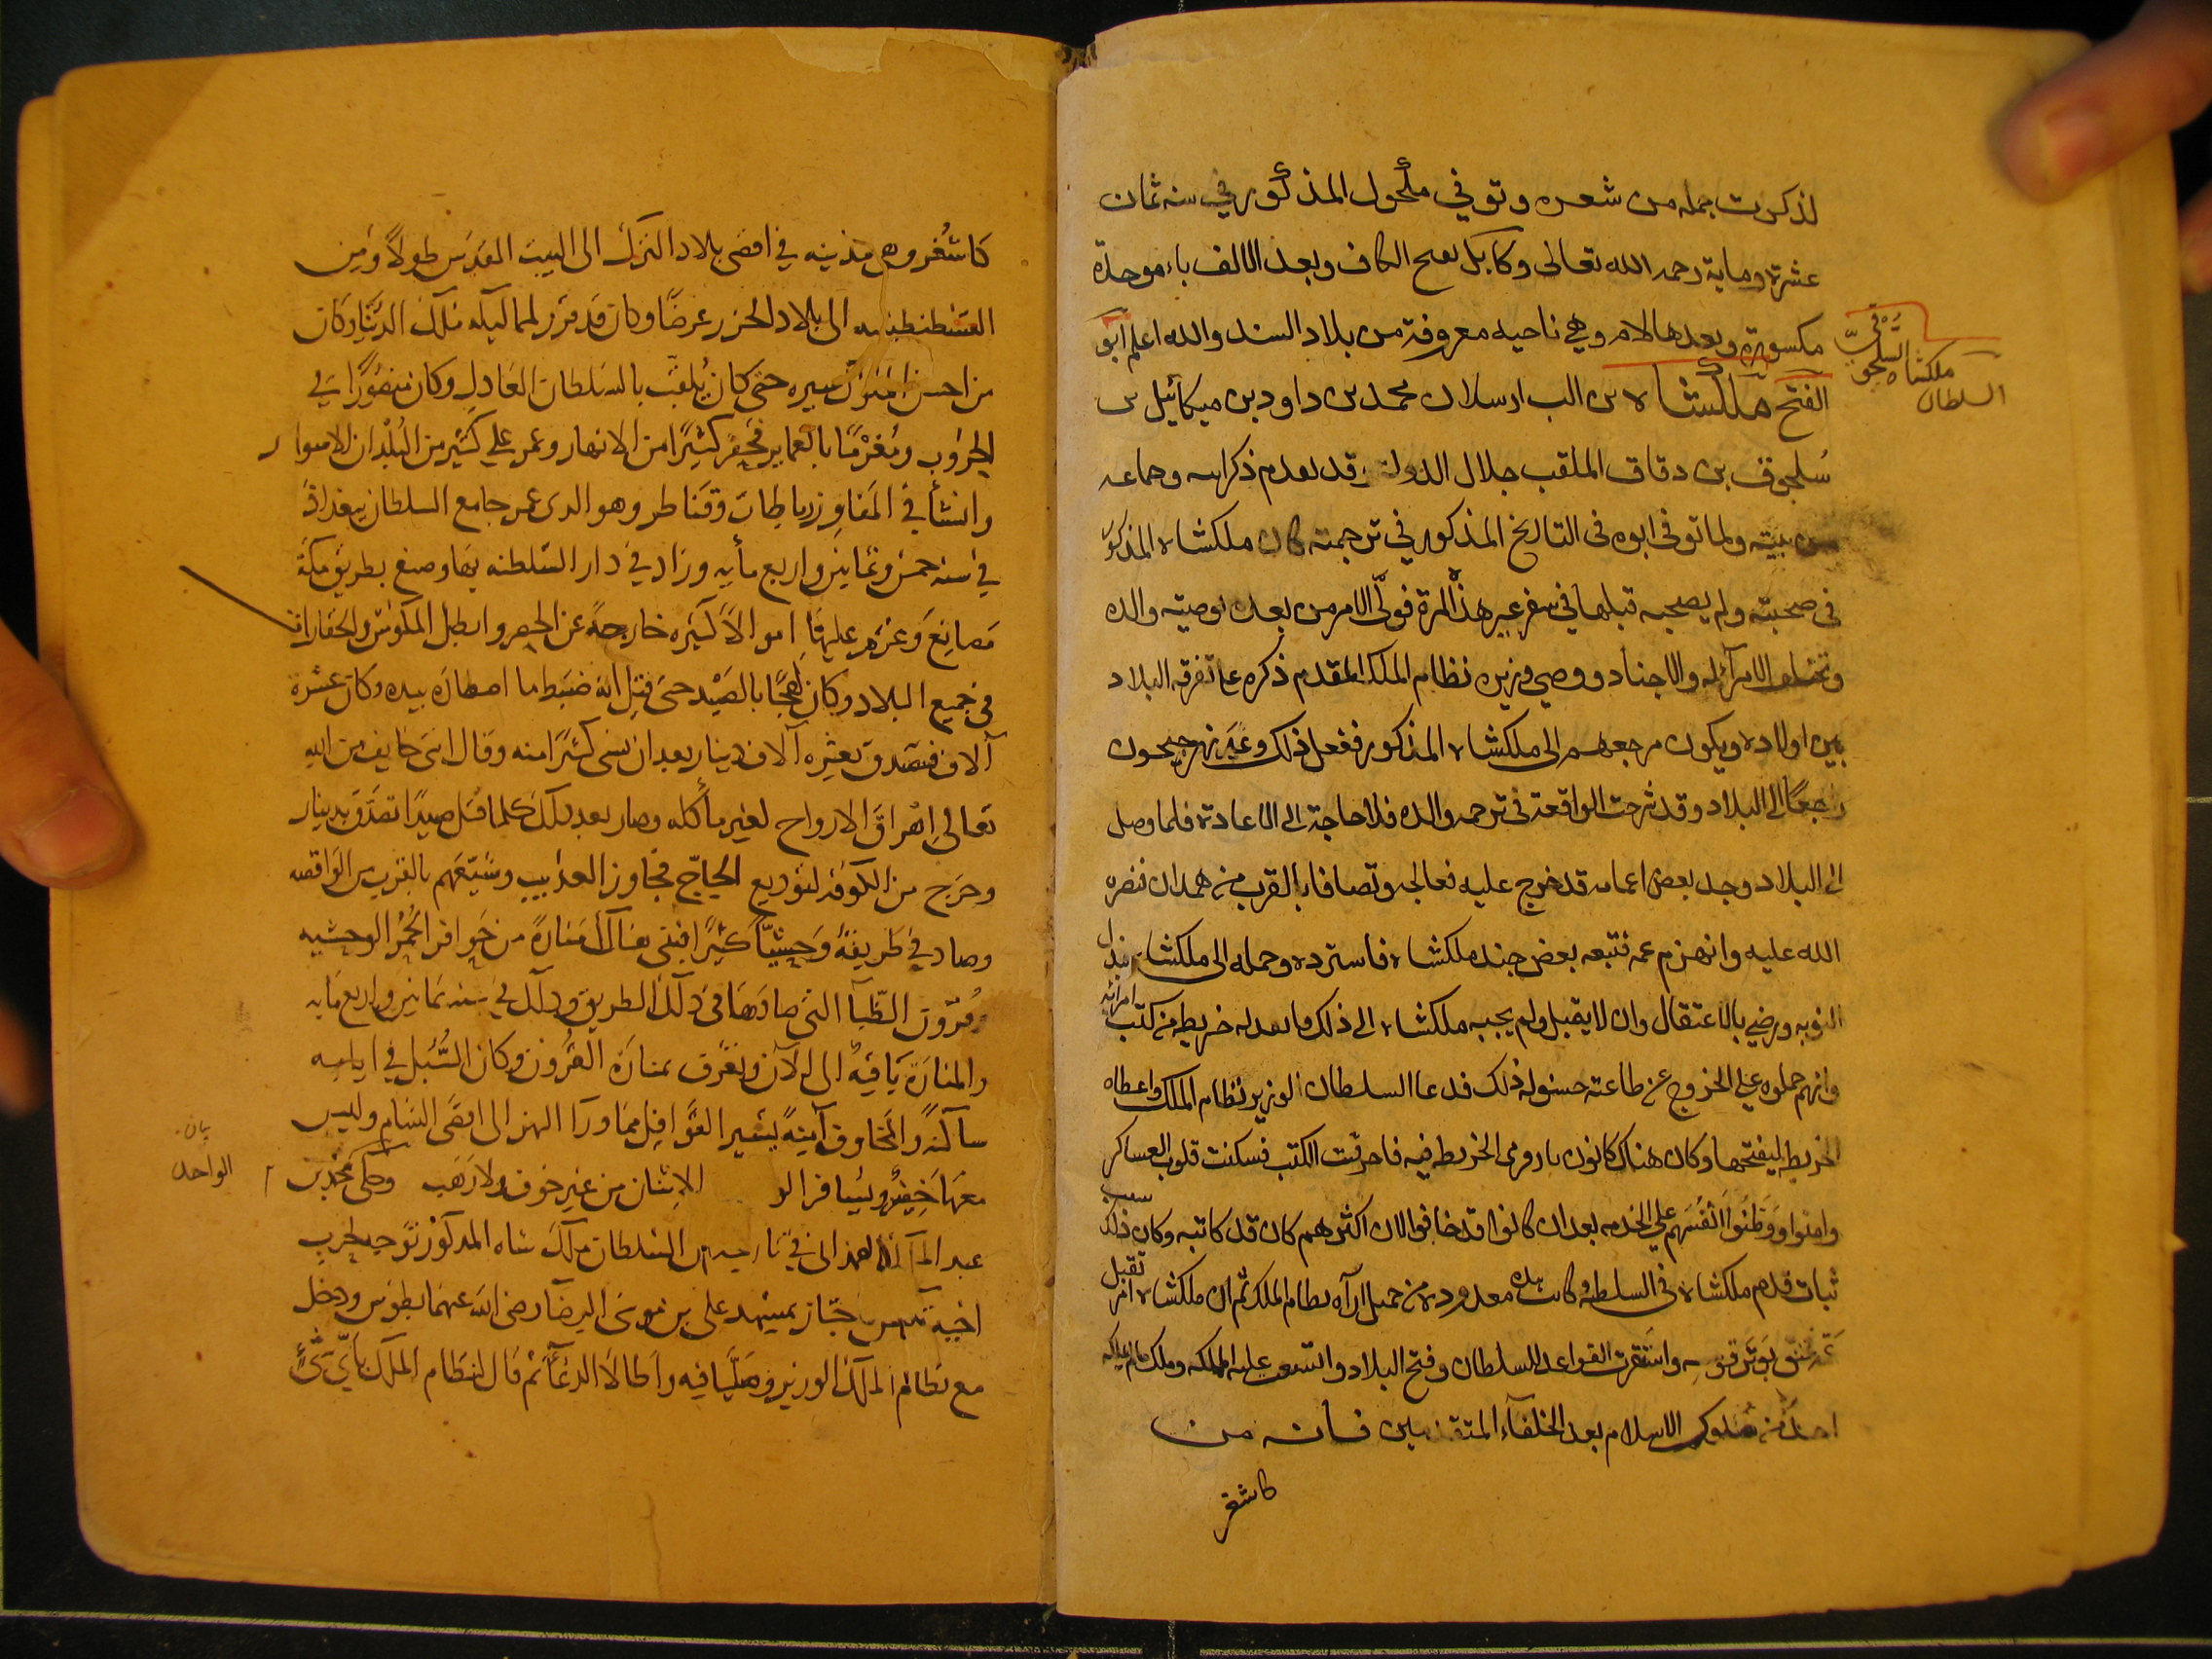 لذكرت جمله من شعره وتوفي مكحول المذكور في سنه ثمان
عشرة وماية رحمه الله تعالى وكابل بفتح الكاف وبعد الالف باء موحدة
مكسورة وبعدها لام وهي ناحيه معروفة من بلاد السند والله اعلم ابو
الفتح ملكشاه بن الب ارسلان محمد بن داود بن ميكائيل بن
السلطان ملكشاه السلجوقي
سلجوق بن دقاق الملقب جلال الدولة وقد تقدم ذكر ابيه وجماعه
من بيته ولما توفي ابوه في التاريخ المذكور في ترجمته كان ملكشاه المذكور
في صحبته ولم يصحبه قبلها في سفر غير هذه المرة فولي الامر من بعده بوصيته والده
وتحليف الامراء له والاجناد ووصي وزيره نظام الملك المقدم ذكره على تفرقه البلاد
بين اولاده ويكون مرجعهم الى ملكشاه المذكور ففعل ذلك وعبر نهر جيحون
راجعا الى البلاد وقد شرحت الواقعة في ترجمه والده فلا حاجة الى الاعادة فلما وصل
الى البلاد وجد بعض اعمامه قد خرج عليه فعالجه وتصافا بالقرب من همدان فنصره
الله عليه وانهزم عمه فتبعه بعض جند ملكشاه فاسترده وحمله الى ملكشاه فبذل
التوبه ورضي بالاعتقال وان لا يقتل ولم يجبه ملكشاه الى ذلك فانفذ له خريطه من كتب امرائه
وانهم حملوه على الخروج عن طاعته حسنوا له ذلك فدعا السلطان الوزير نظام الملك واعطاه
الخريطه ليفتحها وكان هناك كانون نار فرمى الخريطه فيه فاحرقت الكتب فسكنت قلوب العساكر
وامنوا ووطنوا انفسهم على الخدمه بعد ان كانوا قد خافوا لان اكثرهم كان قد كاتبه وكان ذلك سبب
ثبات قدم ملكشاه في السلطنه وكانت هذه معدودة من جميل اراه نظام الملك ثم ان ملكشاه امر بقتل
عمه فخنق بوتر قوسه واستقرت القواعد للسلطان وفتح البلاد واتسعت عليه المملكه وملك ما لم يملكه
احد من ملوك الاسلام بعد الخلفاء المتقدمين فانه من
كاشغر
كاشغر وهي مدينه في اقصى بلاد الترك الى البيت المقدس طولا ومن
القسطنطينيه الى بلاد الخزر عرضا وكان قد قرر لمماليكه ملك الدنيا وكان
من احسن الملوك سيره حتى كان يلقب بالسلطان العادل وكان منصورا في
الحروب ومغرما بالعماير فحفر كثيرا من الانهار وعمر على كثير من البلدان الاسوار
وانشأ في المفاوز رباطات وقناطر وهو الذي عمر جامع السلطان ببغداد
في سنه خمس وثمانين واربع مأيه وزاد في دار السلطنه بها وصنع بطريق مكة
مصانع وغرم عليها اموالا كثيره خارجه عن الحصر وابطل المكوس والخفارات
في جميع البلاد وكان لهجا بالصيد حتى قيل انه ضبط ما اصطاده بيده وكان عشرة
آلاف فتصدق بعشره آلاف دينار بعد ان نسي كثيرا منه وقال انني خايف من الله
تعالى اهراق الارواح لغير مأكله وصار بعد ذلك كلما قتل صيدا تصدق بدينار
وخرج من الكوفه لتوديع الحاج فجاوز العذيب وشيعهم بالقرب من الواقصه
وصاد في طريقه وحشيا كثيرا فبنى هناك منارة من حوافر الحمر الوحشيه
وقرون الظباء التي صادها في ذلك الطريق وذلك في سنه ثمانين واربع مأيه
والمنارة باقيه الى الآن وتعرف بمنارة القرون وكانت السبل في ايامه
ساكنه والمخاوف آمنه تسير القوافل من ما ورآ النهر الى اقصى الشام وليس
معها خفير ويسافر الواحد والاثنان من غير خوف ولا رهب وحكى محمد بن
بيان
الواحد
عبد الملك الهمداني في تاريخه ان السلطان ملك شاه المذكور توجه لحرب
اخيه تكش فاجتاز بمشهد علي بن موسى الرضا رضي الله عنهما بطوس ودخل
مع نظام الملك الوزير وصليا فيه واطالا الدعاء ثم قال لنظام الملك باي شيء